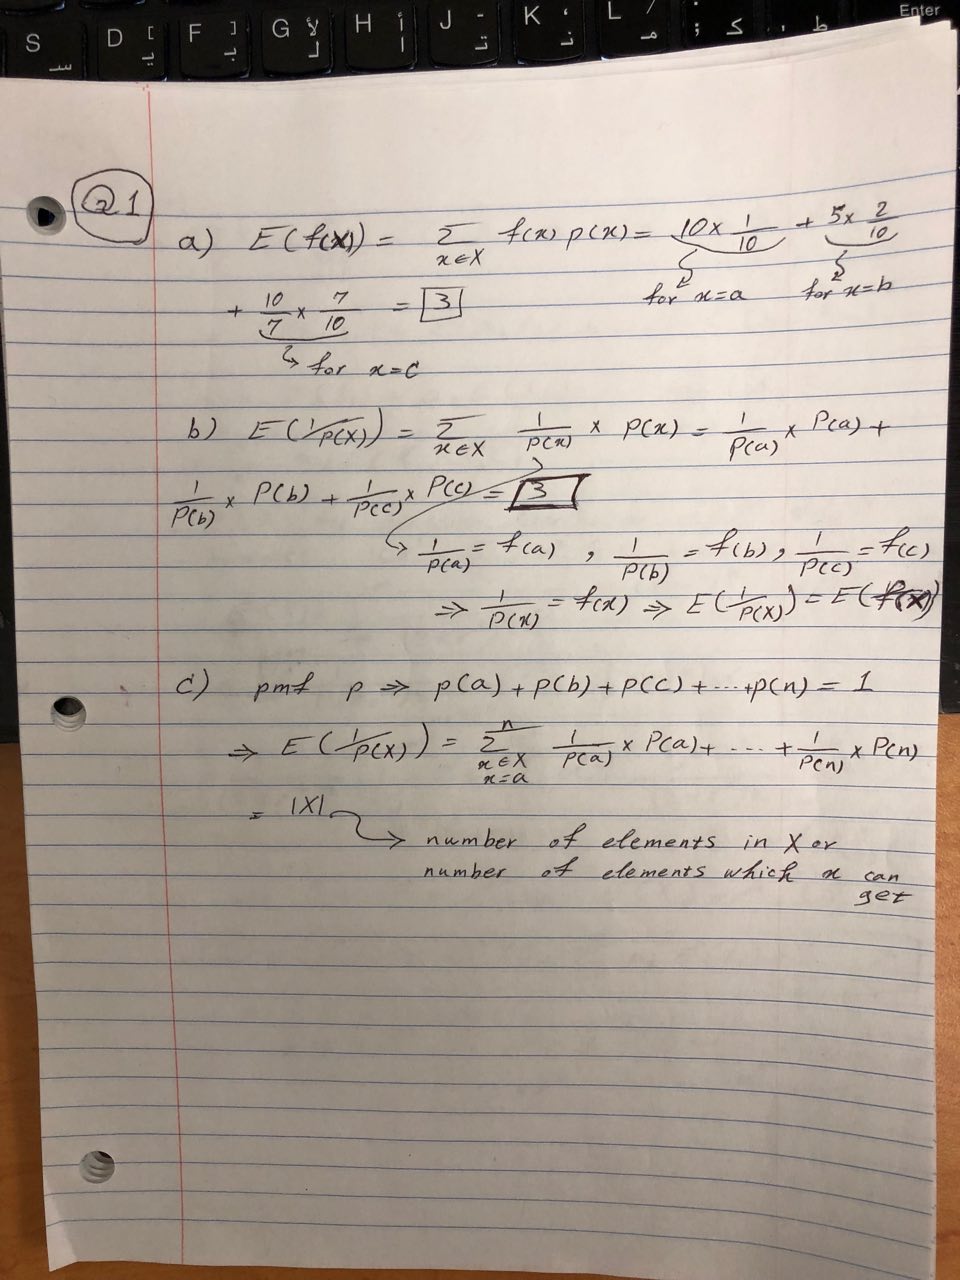 S D F G H J K L Enter
Q1
a) E(f(X)) = Σ f(x) p(x) = 10 × 1/10 + 5 × 2/10
x∈X
for x=a for x=b
+ 10/7 × 7/10 = 3
for x=c
b) E(1/P(X)) = Σ 1/P(x) × P(x) = 1/P(a) × P(a) +
x∈X
1/P(b) × P(b) + 1/P(c) × P(c) = 3
1/P(a) = f(a), 1/P(b) = f(b), 1/P(c) = f(c)
⇒ 1/P(x) = f(x) ⇒ E(1/P(X)) = E(f(X))
c) pmf p ⇒ p(a) + p(b) + p(c) + ... + p(n) = 1
n
⇒ E(1/P(X)) = Σ 1/P(a) × P(a) + ... + 1/P(n) × P(n)
x∈X
x=a
= |X|
number of elements in X or
number of elements which x can
get